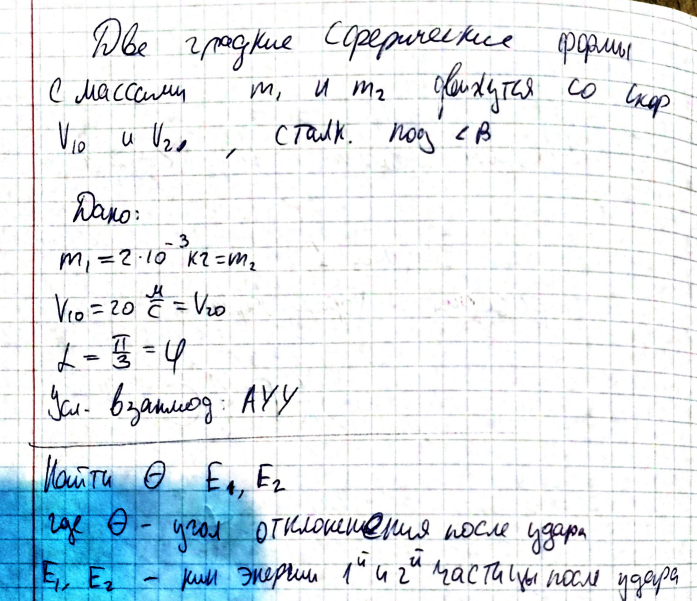 Две гладкие сферические формы
с массами m₁ и m₂ движутся со скор
V₁₀ и V₂, , сталк. под <В
Дано:
m₁ = 2·10⁻³ кг = m₂
V₁₀ = 20 м/с = V₂₀
L = π/3 = φ
Усл. взаимод: АУУ
Найти Θ E₁, E₂
где Θ - угол отклонения после удара
E₁, E₂ - кин энергии 1й и 2й частицы после удара